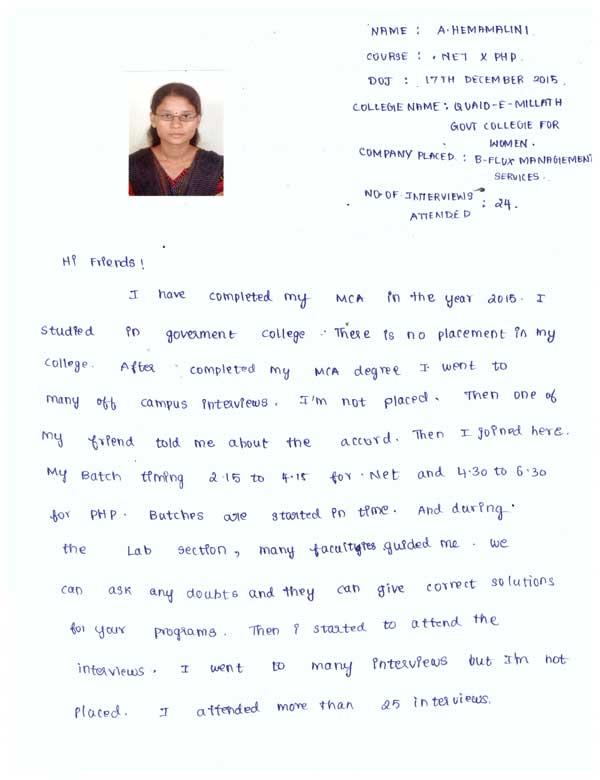 NAME : A.HEMAMALINI
COURSE : .NET & PHP
DOJ : 17TH DECEMBER 2015.
COLLEGE NAME : QUAID-E-MILLATH
GOVT COLLEGE FOR
WOMEN.
COMPANY PLACED : B-FLUX MANAGEMENT
SERVICES.
NO.OF.INTERVIEWS : 24.
ATTENDED
Hi Friends!
I have completed my MCA in the year 2015. I
studied in goverment college. There is no placement in my
college. After completed my MCA degree I went to
many off campus interviews. I'm not placed. Then one of
my friend told me about the accord. Then I joined here.
My Batch timing 2.15 to 4.15 for .Net and 4.30 to 6.30
for PHP. Batches are started in time. And during.
the Lab section, many facultyies guided me. we
can ask any doubts and they can give correct solutions
for your programs. Then i started to attend the
interviews. I went to many interviews but I'm not
placed. I attended more than 25 interviews.